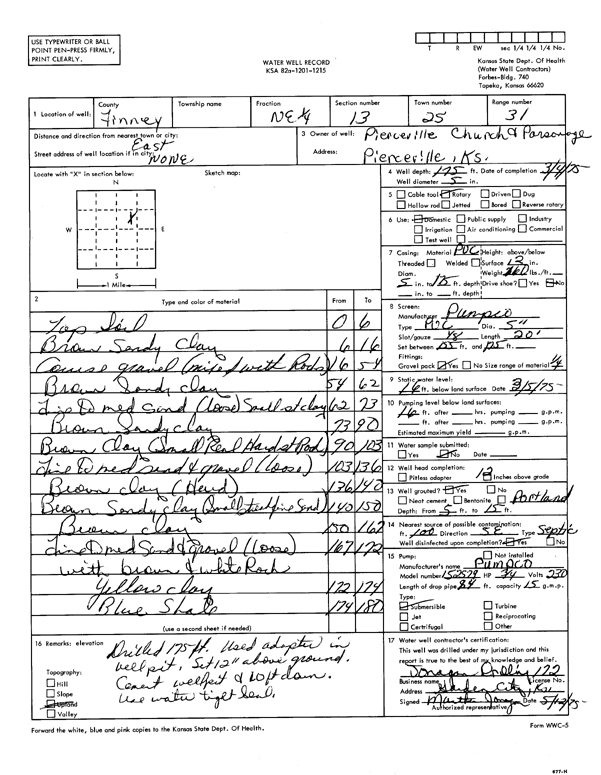 USE TYPEWRITER OR BALL
POINT PEN-PRESS FIRMLY,
PRINT CLEARLY.
WATER WELL RECORD
KSA 82a-1201-1215
T R EW sec 1/4 1/4 1/4 No.
Kansas State Dept. Of Health
(Water Well Contractors)
Forbes-Bldg. 740
Topeka, Kansas 66620
1 Location of well: County Finney Township name Fraction NE 1/4 Section number 13 Town number 25 Range number 31
Distance and direction from nearest town or city: East
Street address of well location if in city: NONE
3 Owner of well: Pierceville Church & Parsonage
Address: Pierceville, Ks.
Locate with "X" in section below: Sketch map:
N
W E
S
1 Mile
4 Well depth: 175 ft. Date of completion 3/4/75
Well diameter 5 in.
5 Cable tool Rotary Driven Dug
Hollow rod Jetted Bored Reverse rotary
6 Use: Domestic Public supply Industry
Irrigation Air conditioning Commercial
Test well
7 Casing: Material PVC Height: above/below
Threaded Welded Surface 12 in.
Diam. Weight 160 lbs./ft.
5 in. to ft. depth Drive shoe? Yes No
in. to ft. depth
2 Type and color of material From To
Top Soil 0 6
Brown Sandy Clay 6 16
Course gravel (mixed with Rocks) 16 54
Brown Sandy clay 54 62
Fine to med sand (loose) Small st clay 62 73
Brown Sandy clay 73 90
Brown Clay (Small Real Hard st Rock) 90 103
Fine to med sand & gravel (loose) 103 136
Brown clay (Hard) 136 140
Brown Sandy clay (Small fine Sand) 140 150
Brown clay 150
Fine to med Sand & gravel (loose) 167 172
with brown & white Rock
Yellow clay 172 174
Blue Shale 174 180
(use a second sheet if needed)
8 Screen:
Manufacturer Pumpco
Type Dia. 5"
Slot/gauze 1/8 Length 20'
Set between 155 ft. and 175 ft.
Fittings:
Gravel pack Yes No Size range of material 1/4
9 Static water level:
16 ft. below land surface Date 3/5/75
10 Pumping level below land surfaces:
16 ft. after hrs. pumping g.p.m.
ft. after hrs. pumping g.p.m.
Estimated maximum yield g.p.m.
11 Water sample submitted:
Yes No Date
12 Well head completion:
Pitless adapter 12 Inches above grade
13 Well grouted? Yes No
Neat cement Bentonite Portland
Depth: From 5 ft. to 15 ft.
14 Nearest source of possible contamination:
ft. 100 Direction SE Type Septic
Well disinfected upon completion? Yes No
15 Pump: Not installed
Manufacturer's name Pumpco
Model number 152579 HP 3/4 Volts 230
Length of drop pipe 84 ft. capacity 15 g.m.p.
Type:
Submersible Turbine
Jet Reciprocating
Certrifugal Other
16 Remarks: elevation
Drilled 175 ft. Used adapter in
well pit. Set 12" above ground.
Cement well pit & down.
Use water tight Seal.
Topography:
Hill
Slope
Upland
Valley
17 Water well contractor's certification:
This well was drilled under my jurisdiction and this
report is true to the best of my knowledge and belief.
Drilling 122
Business name License No.
Address Garden City, Ks.
Signed Date 5/12/75
Authorized representative
Forward the white, blue and pink copies to the Kansas State Dept. Of Health.
Form WWC-5
877-H